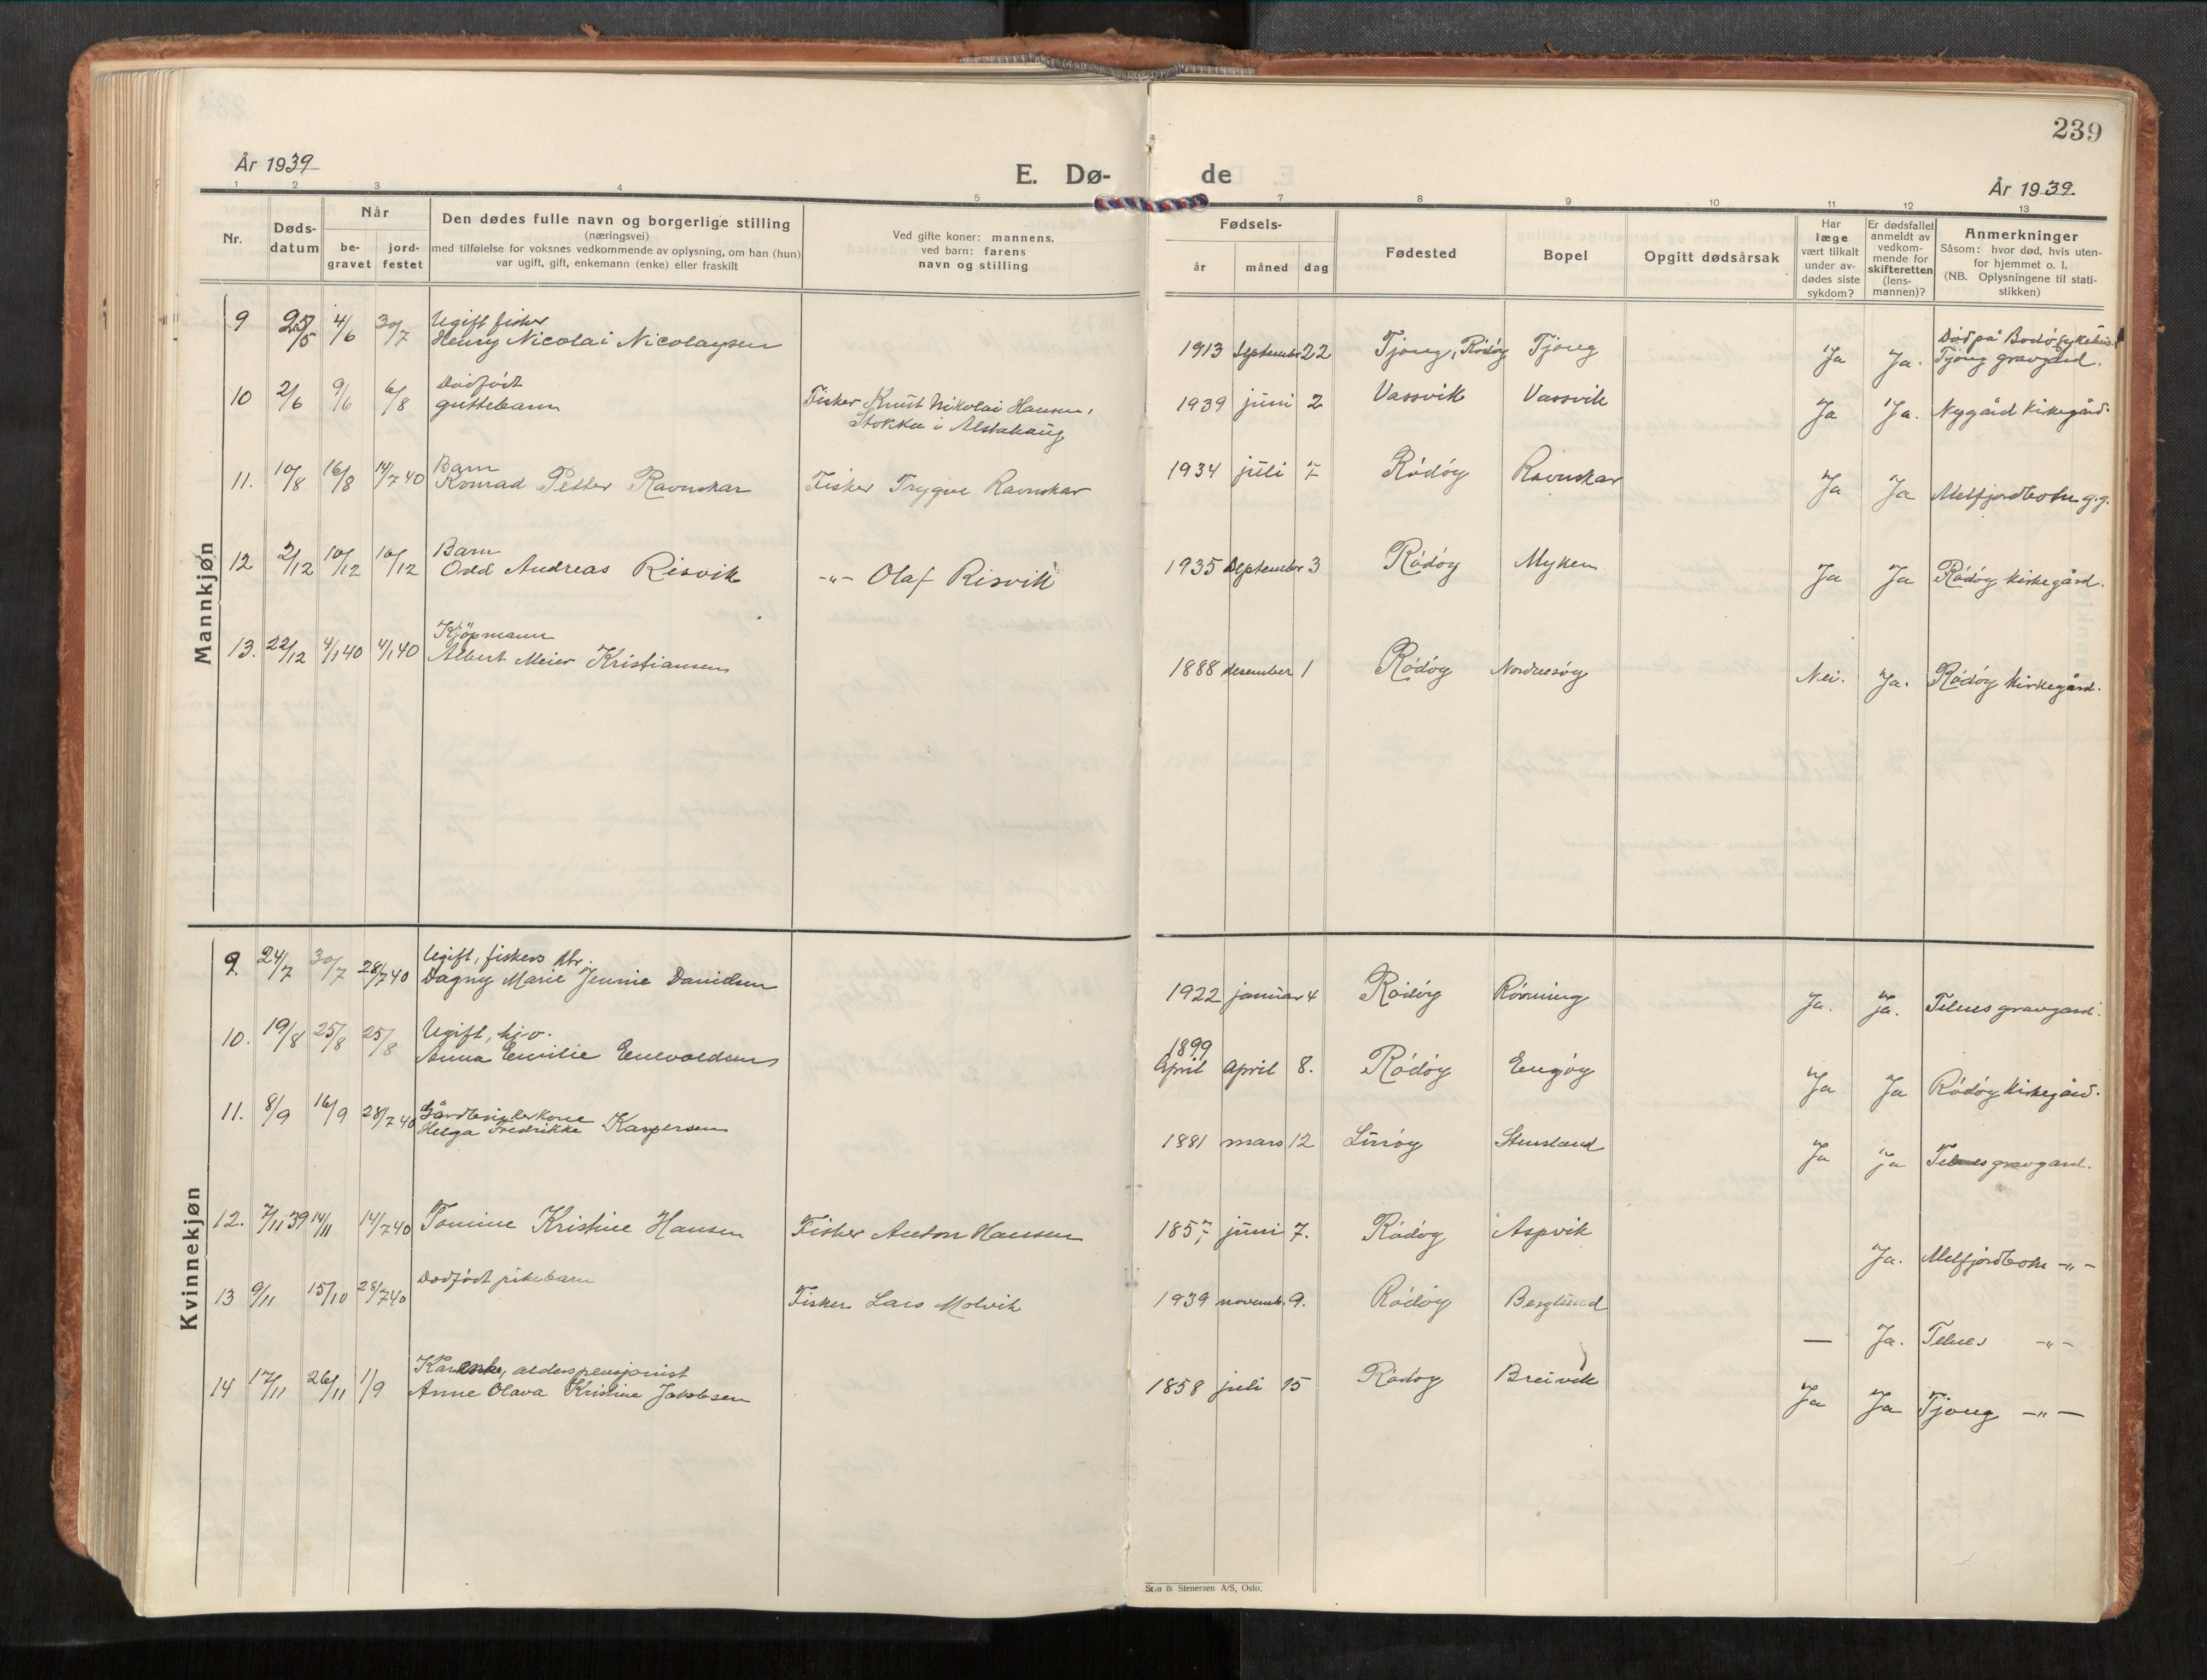 239
År 1939
E. Dø-
de
År 1939.
1 2 3 4 5 7 8 9 10 11 12 13
Nr.
Døds-
datum
Når
be-
gravet
jord-
festet
Den dødes fulle navn og borgerlige stilling
(næringsvei)
med tilføielse for voksnes vedkommende av oplysning, om han (hun)
var ugift, gift, enkemann (enke) eller fraskilt
Ved gifte koner: mannens,
ved barn: farens
navn og stilling
Fødsels-
år
måned
dag
Fødested
Bopel
Opgitt dødsårsak
Har
læge
vært tilkalt
under av-
dødes siste
sykdom?
Er dødsfallet
anmeldt av
vedkom-
mende for
skifteretten
(lens-
mannen)?
Anmerkninger
Såsom: hvor død, hvis uten-
for hjemmet o. l.
(NB. Oplysningene til stati-
stikken)
Mannkjøn
9 25/5 4/6 30/7 Ugift fisker
Henry Nicolai Nicolaysen
1913 September 22 Tjong, Rödöy Tjong Ja Ja. Död på Bodö sykehus
Tjong gravgård.
10 2/6 9/6 6/8 Dödfödt
guttebarn
Fisker Knut Nikolai Hansen,
Stokka i Alstahaug
1939 juni 2 Vassvik Vassvik Ja Ja. Nygård Kirkegård.
11. 10/8 16/8 14/7 40 Barn
Konrad Petter Ravnskar
Fisker Trygve Ravnskar
1934 juli 7 Rödöy Ravnskar Ja Ja Melfjordbotn g.g.
12 2/12 10/12 10/12 Barn
Odd Andreas Risvik
-"- Olaf Risvik
1935 September 3 Rödöy Myken Ja Ja Rödöy kirkegård.
13. 22/12 4/1 40 4/1 40 Kjöpmann
Albert Meier Kristiansen
1888 desember 1 Rödöy Nordnesöy Nei. Ja. Rödöy kirkegård.
Kvinnekjøn
9. 24/7 30/7 28/7 40 Ugift, fiskers dtr.
Dagny Marie Jennie Danielsen
1922 januar 4 Rödöy Rönning Ja. Ja. Telnes gravgard.
10. 19/8 25/8 25/8 Ugift, hj.v.
Anna Emilie Enevoldsen
1899
April April 8. Rödöy Engöy Ja Ja Rödöy Kirkegård.
11. 8/9 16/9 28/7 40 Gårdbrukerkone
Helga Fredrikke Kaspersen
1881 mars 12 Luröy Stensland Ja Ja Telnes gravgard.
12. 7/11 39 14/11 14/7 40 Tomine Kristine Hansen
Fisker Anton Hansen
1857 juni 7. Rödöy Aspvik Ja. Melfjordbotn -"-
13 9/11 15/10 28/7 40 Dödfödt pikebarn
Fisker Lars Molvik
1939 novemb. 9. Rödöy Berglund — Ja. Telnes -"-
14 17/11 26/11 1/9 Kårenke, alderspensjonist
Anne Olava Kristine Jakobsen
1858 juli 15 Rödöy Breivik Ja Ja Tjong -"-
Sem & Stenersen A/S, Oslo.